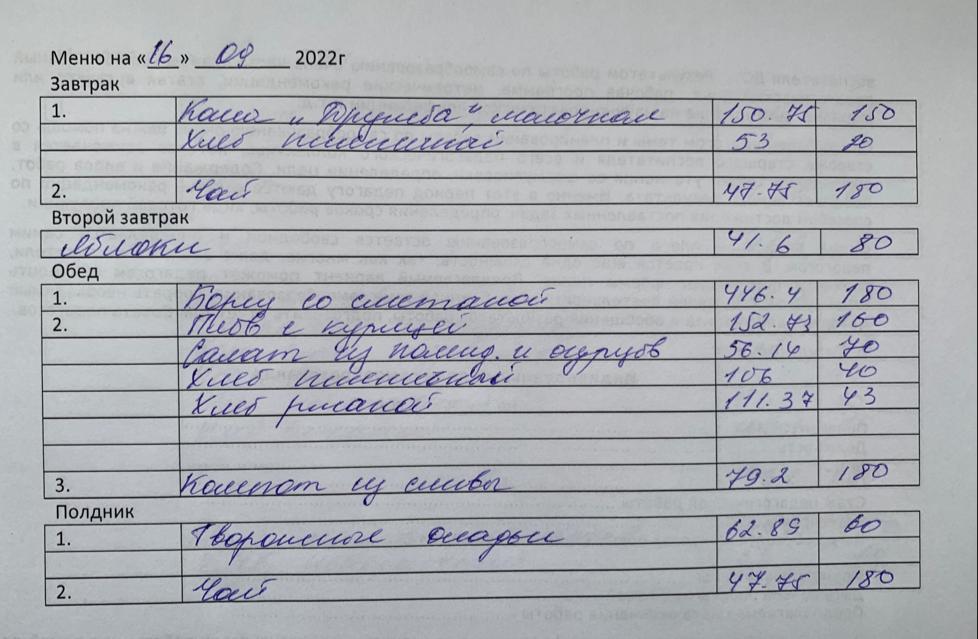 Меню на «16» 09 2022г
Завтрак
1. Каша „Дружба" молочная 150.75 150
Хлеб пшеничный 53 20
2. Чай 47.75 180
Второй завтрак
Яблоки 41.6 80
Обед
1. Борщ со сметаной 446.4 180
2. Плов с курицей 152.73 160
Салат из помид. и огурцов 56.14 70
Хлеб пшеничный 106 40
Хлеб ржаной 111.37 43
3. Компот из сливы 79.2 180
Полдник
1. Творожные оладьи 62.89 60
2. Чай 47.75 180